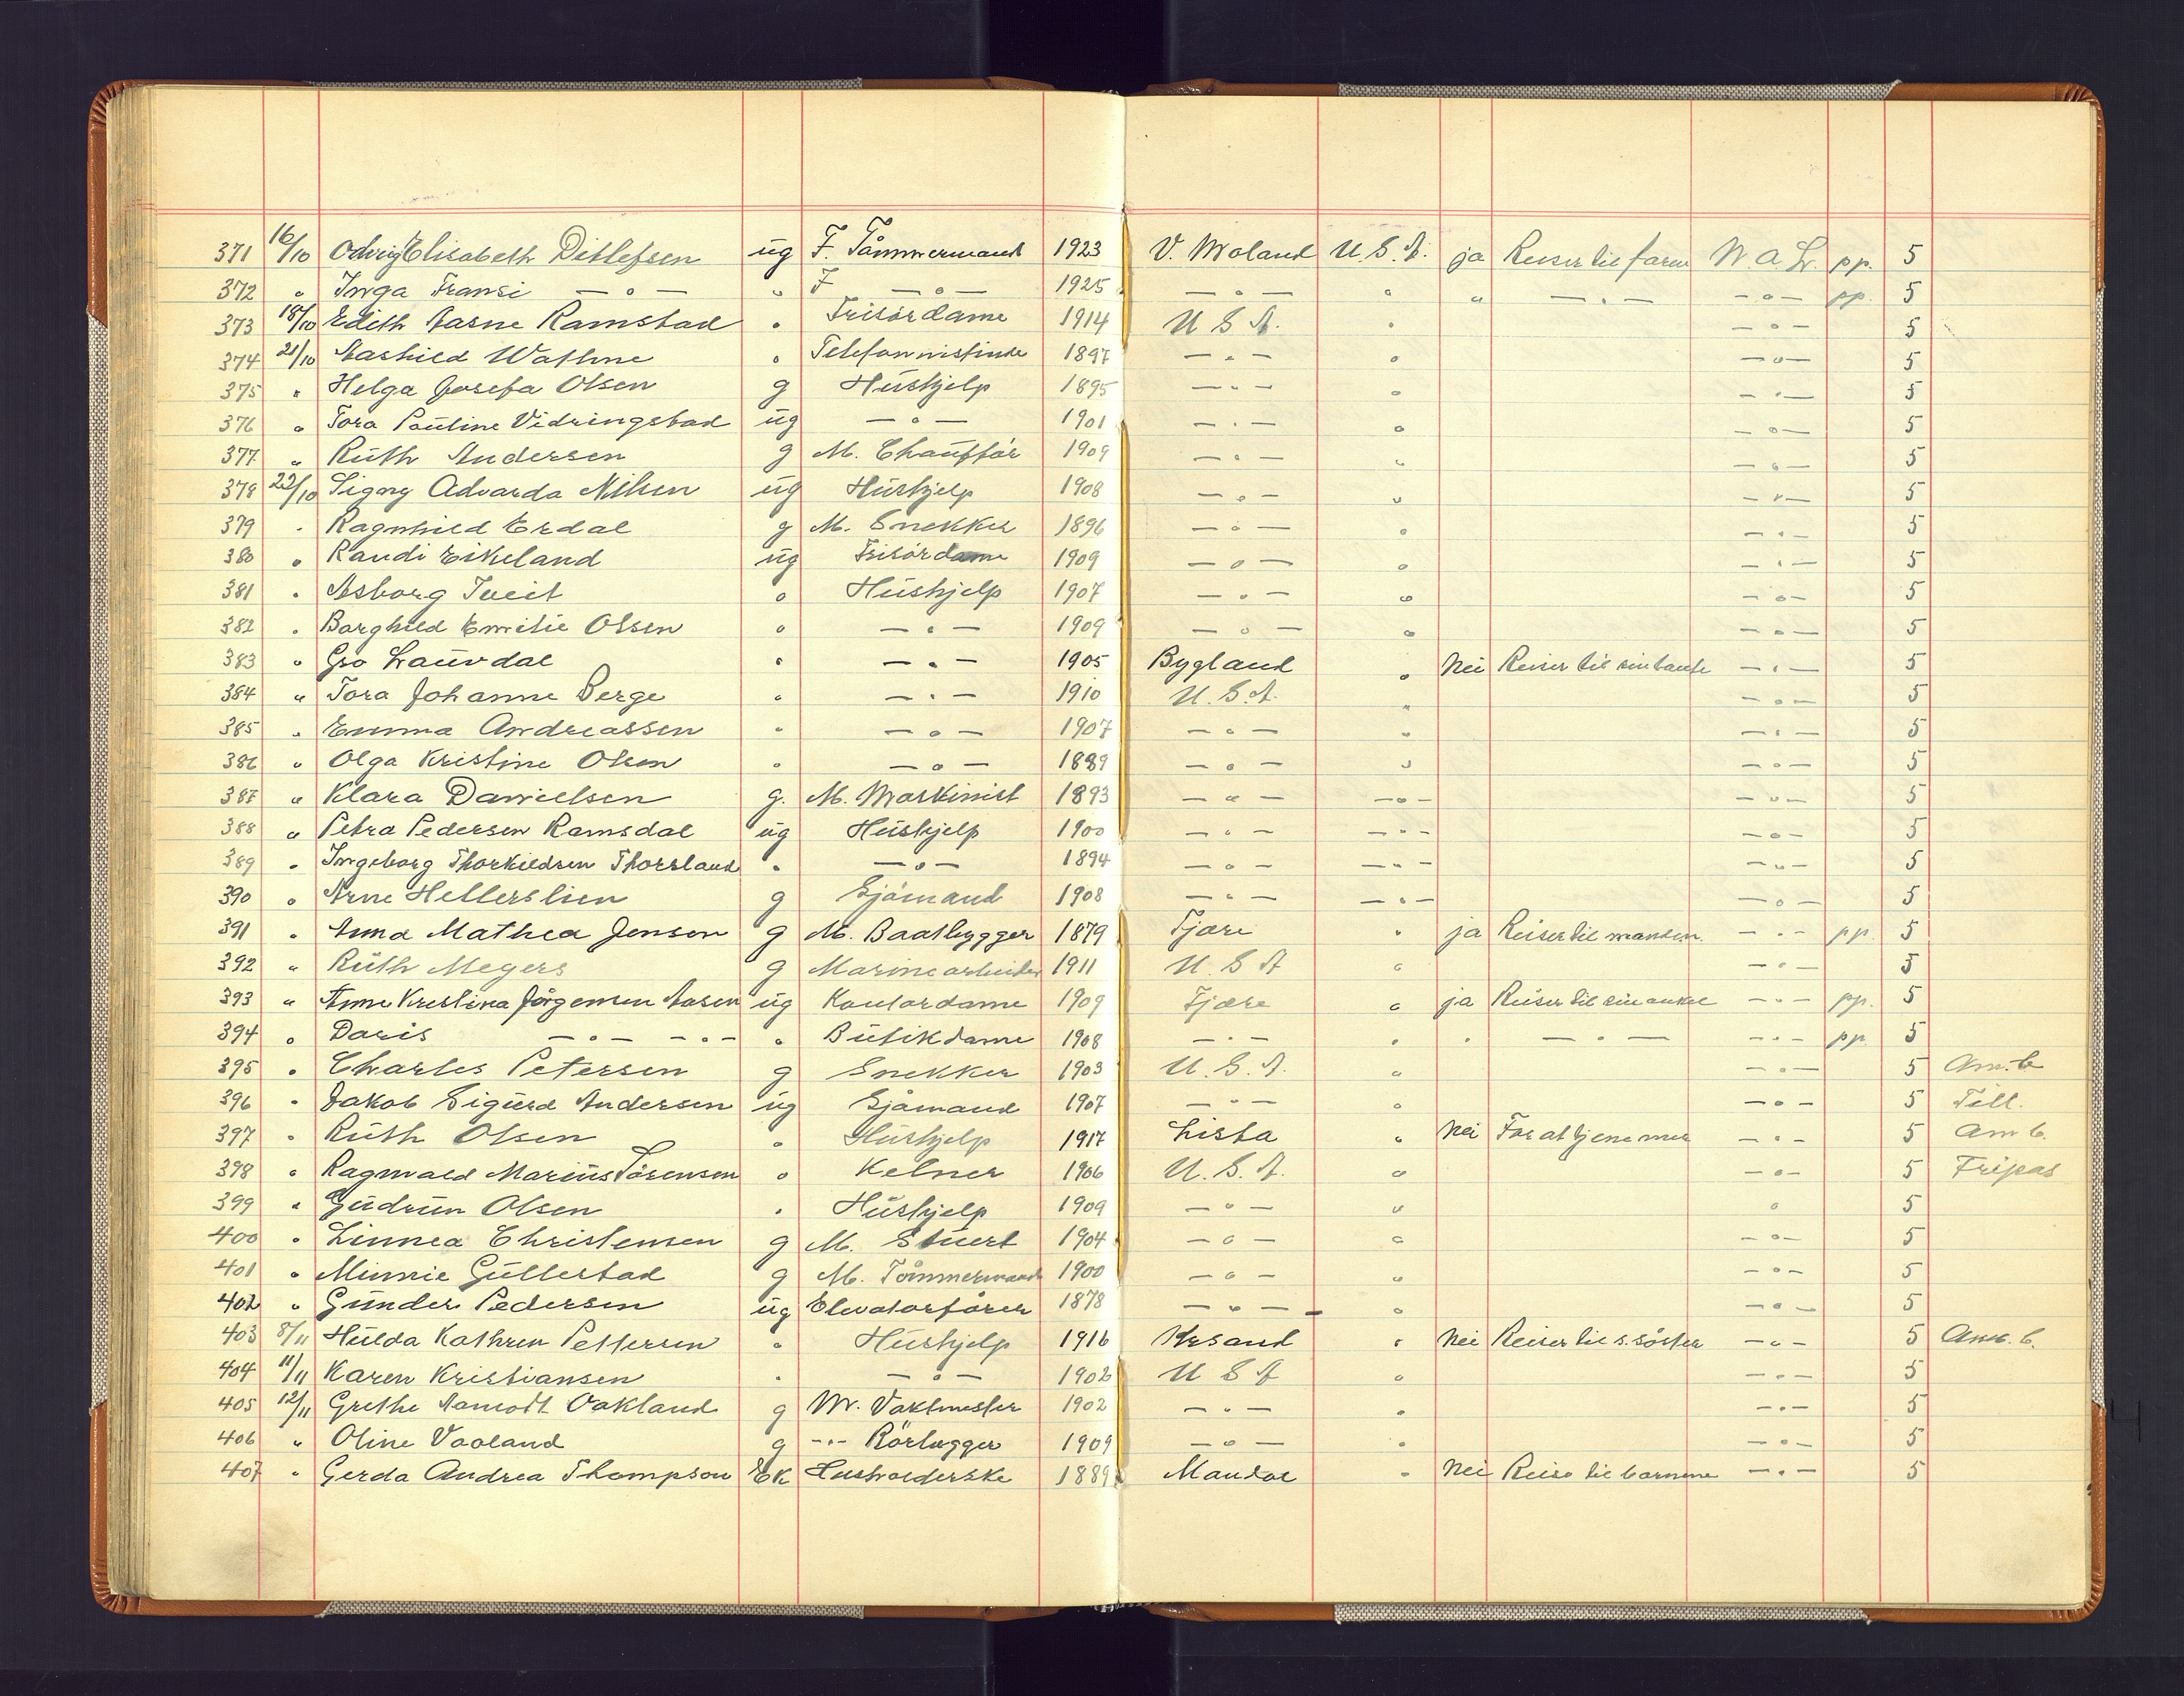 371 16/10 Odrig Elisabeth Ditlefsen ug F. Tömmermand 1923 V. Moland U.S.A. ja Reiser til faren N.A.L. pp. 5
372 " Inga Fransi — " — " F — " — 1925 — " — " " — " — — " — pp. 5
373 18/10 Edith Aasne Ramstad " Frisördame 1914 U S A. " — " — 5
374 21/10 Aashild Wathne " Telefonnistinde 1897 — " — " — " — 5
375 " Helga Josefa Olsen g Hushjelp 1895 — " — " — " — 5
376 " Tora Pauline Vidringstad ug — " — 1901 — " — " — " — 5
377 " Ruth Andersen g M. Chaufför 1909 — " — " — " — 5
378 22/10 Signy Advarda Nilsen ug Hushjelp 1908 — " — " — " — 5
379 " Ragnhild Erdal g M. Snekker 1896 — " — " — " — 5
380 " Randi Eikeland ug Frisördame 1909 — " — " — " — 5
381 " Asborg Tveit " Hushjelp 1907 — " — " — " — 5
382 " Borghild Emilie Olsen " — " — 1909 — " — " — " — 5
383 " Gro Lauvdal " — " — 1905 Bygland " Nei Reiser til sin tante — " — 5
384 " Tora Johanne Berge " — " — 1910 U.S.A. " — " — 5
385 " Emma Andreassen " — " — 1907 — " — " — " — 5
386 " Olga Kristine Olsen " — " — 1889 — " — " — " — 5
387 " Klara Danielsen g. M. Maskinist 1893 — " — — " — — " — 5
388 " Petra Pedersen Ramsdal ug Hushjelp 1900 — " — — " — — " — 5
389 " Ingeborg Thorkildsen Thorsland " — " — 1894 — " — — " — — " — 5
390 " Arne Hellerslien g Sjömand 1908 — " — — " — — " — 5
391 " Anna Mathea Jensen g M. Baatbygger 1879 Fjære " ja Reiser til manden. — " — pp. 5
392 " Ruth Megers g Marinearbeider 1911 U.S A " — " — 5
393 " Anne Kristina Jörgensen Aasen ug Kontordame 1909 Fjære " ja Reiser til sin onkel — " — pp. 5
394 " Doris — " — — " — " Butikdame 1908 — " — " " — " — — " — pp. 5
395 " Charles Petersen g Snekker 1903 U.S.A. " — " — 5 Am.b
396 " Jakob Sigurd Andersen ug Sjömand 1907 — " — " — " — 5 Till.
397 " Ruth Olsen " Hushjelp 1917 Lista " Nei For at tjene mer — " — 5 Am b.
398 " Ragnvald Marius Sörensen " Kelner 1906 U.S.A. " — " — 5 Fripas
399 " Gudrun Olsen " Hushjelp 1909 — " — " " 5
400 " Linnea Christensen g M. Stuert 1904 — " — " — " — 5
401 " Minnie Gullestad g M. Tömmermand 1900 — " — " — " — 5
402 " Gunder Pedersen ug Elevatorförer 1878 — " — " — " — 5
403 8/11 Hulda Kathren Pettersen " Hushjelp 1916 Krsand " Nei Reiser til s. söster — " — 5 Am. b.
404 11/11 Karen Kristiansen " — " — 1902 U S A " — " — 5
405 12/11 Grethe Aamodt Oakland g M. Vaktmester 1902 — " — " — " — 5
406 " Oline Vaaland g — " — Rörlegger 1909 — " — " — " — 5
407 " Gerda Andrea Thompson Ek Husholderske 1889 Mandal " Nei Reise til barnene — " — 5